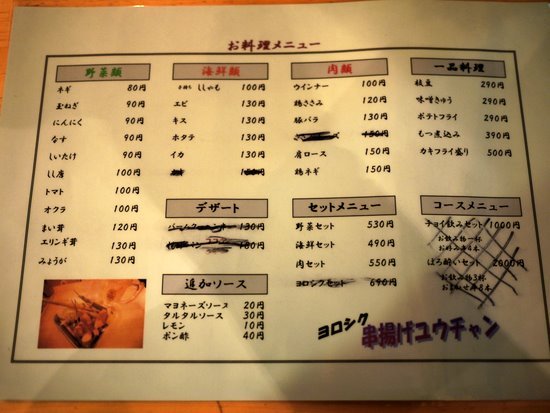 お料理メニュー
野菜類
ネギ 80円
玉ねぎ 90円
にんにく 90円
なす 90円
しいたけ 90円
しし唐 100円
トマト 100円
オクラ 100円
まい茸 110円
エリンギ茸 130円
みょうが 130円
海鮮類
子持ち ししゃも 100円
エビ 130円
キス 130円
ホタテ 130円
イカ 130円
130円
肉類
ウインナー 100円
鶏ささみ 120円
豚バラ 130円
150円
肩ロース 150円
鶏ネギ 150円
一品料理
枝豆 290円
味噌きゅう 290円
ポテトフライ 290円
もつ煮込み 390円
カキフライ盛り 500円
デザート
130円
追加ソース
マヨネーズソース 20円
タルタルソース 30円
レモン 10円
ポン酢 40円
セットメニュー
野菜セット 530円
海鮮セット 490円
肉セット 550円
ヨロシクセット 690円
コースメニュー
チョイ飲みセット 1000円
お飲み物一杯
ほろ酔いセット 2000円
お飲み物3杯
おまかせ串8本
ヨロシク 串揚げユウチャン